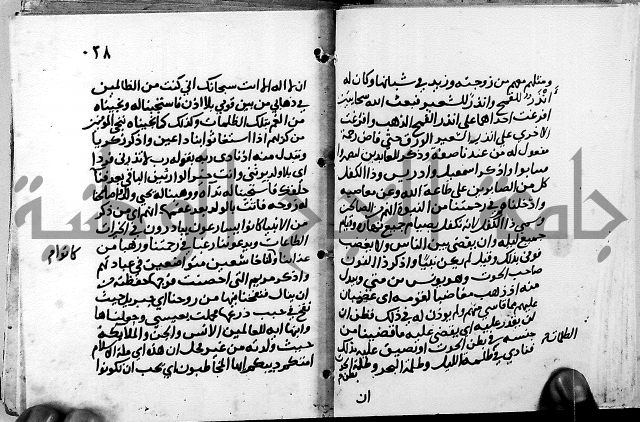 ومثلهم معهم من زوجته وزيد في شبابها وكان له
أندر للقمح واندر للشعير فبعث الله سحابتين
افرغت احداهما على اندر القمح الذهب وافرغت
الاخرى على اندر الشعير الورق حتى فاض رحمة
مفعول له من عندنا صفة وذكرى للعابدين ليصبروا
واذكر اسمعيل وادريس وذا الكفل
كل من الصابرين على طاعة الله وعن معاصيه
وادخلناهم في رحمتنا من النبوة انهم من الصالحين
وسمي ذا الكفل لانه تكفل بصيام جميع نهاره وقيام
جميع ليله وان يقضي بين الناس ولا يغضب
فوفى بذلك وقيل لم يكن نبيا واذكر ذا النون
صاحب الحوت وهو يونس بن متى ويبدل
منه اذ ذهب مغاضبا لقومه اي غضبان
عليهم مما قاسى منهم ولم يوذن له في ذلك فظن ان
لن نقدر عليه اي نقضي عليه ما قضينا من
حبسه في بطن الحوت او نضيق عليه بذلك
فنادى في ظلمة الليل وظلمة البحر وظلمة الحوت
الظلمات
ان
٠٢٨
ان لا اله الا انت سبحانك اني كنت من الظالمين
في ذهابي من بين قومي بلا اذن فاستجبنا له ونجيناه
من الغم بتلك الظلمات وكذلك كما نجيناه ننجي المومنين
من كربهم اذا استغاثوا بنا داعين واذكر زكريا
ويبدل منه اذ نادى ربه بقوله رب لا تذرني فردا
اي بلا ولد يرثني وانت خير الوارثين الباقي بعد فنا
خلقك فاستجبنا له نداه ووهبنا له يحيى ولدا واصلحنا
له زوجه فاتت بالولد بعد عقمها انهم اي من ذكر
من الانبيا كانوا يسارعون يبادرون في الخيرات
الطاعات ويدعوننا رغبا في رحمتنا ورهبا من
عذابنا وكانوا لنا خاشعين متواضعين في عبادتهم
كانوا
واذكر مريم التي احصنت فرجها حفظته من
ان ينال فنفخنا فيها من روحنا اي جبريل حيث
نفخ في جيب درعها فحملت بعيسى وجعلناها
وابنها اية للعالمين الانس والجن والملايكة
حيث ولدته من غير فحل ان هذه اي ملة الاسلام
امتكم دينكم ايها المخاطبون اي يجب ان تكونوا